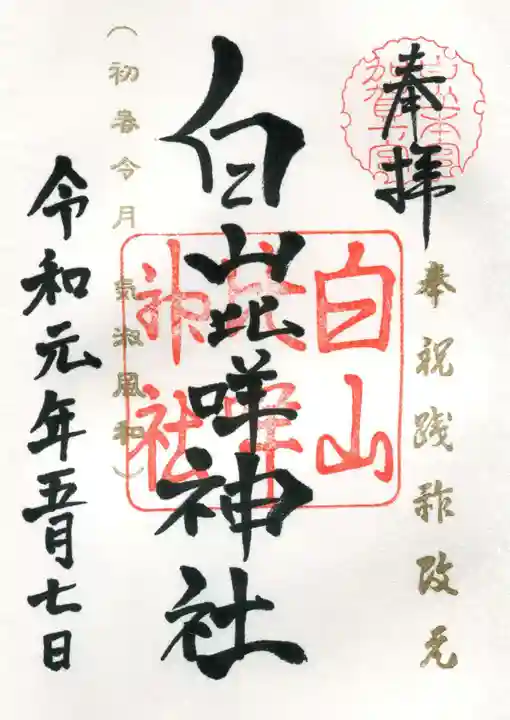 奉拝
奉祝践祚改元
白山比咩神社
白山
比咩
神社
(初春令月 気淑風和)
令和元年五月七日